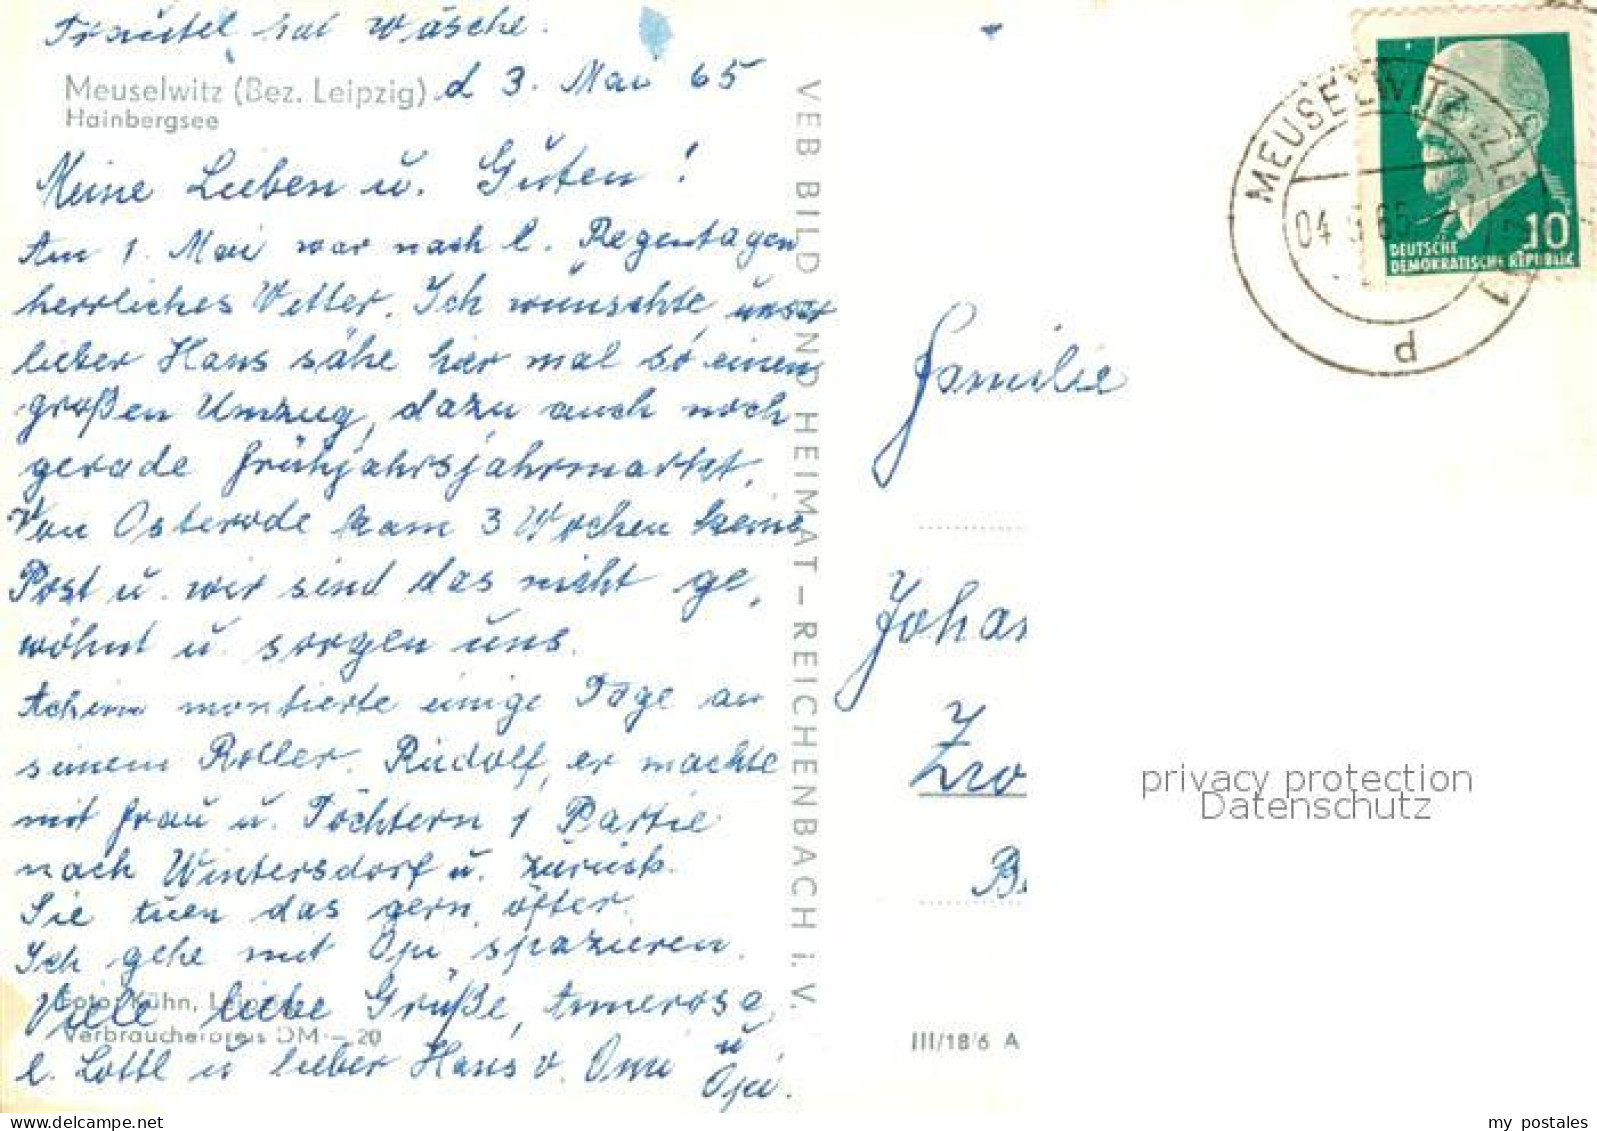 Trautel hat Wäsche.
Meuselwitz (Bez. Leipzig)
Hainbergsee
d 3. Mai 65
Meine Lieben u. Guten!
Am 1. Mai war nach l. Regentagen
herrliches Wetter. Ich wünschte, unser
lieber Hans sähe hier mal so einen
großen Umzug, dazu auch noch
gerade Frühjahrsjahrmarkt.
Von Osterode kam 3 Wochen keine
Post u. wir sind das nicht ge-
wöhnt u. sorgen uns.
Achim montierte einige Tage an
seinem Roller. Rudolf, er machte
mit Frau u. Töchtern 1 Partie
nach Wintersdorf u. zurück.
Sie tuen das gern öfter.
Ich gehe mit Opi spazieren.
Viele liebe Grüße, Annerose,
l. Lottl u lieber Hans v. Omi u
Opi.
Foto: Kühn, Leipzig
Verbraucherpreis DM -.20
VEB BILD UND HEIMAT - REICHENBACH i. V.
MEUSELWITZ
04 65
d
10
DEUTSCHE
DEMOKRATISCHE REPUBLIK
Familie
Johan
Zwo
B
III/18/6 A
privacy protection
Datenschutz
my postales